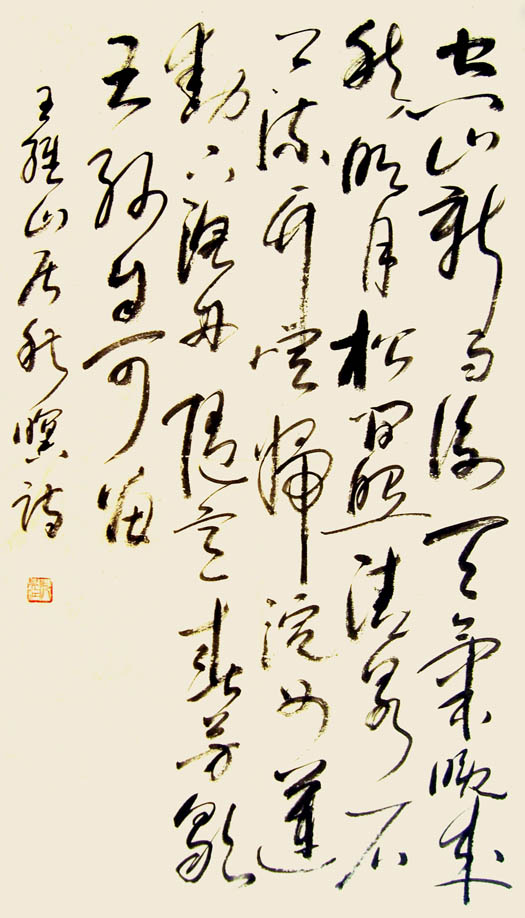 空山新雨後天氣晚來
秋明月松間照清泉石
上流竹喧歸浣女蓮
動下漁舟隨意春芳歇
王孫自可留
王維山居秋暝詩